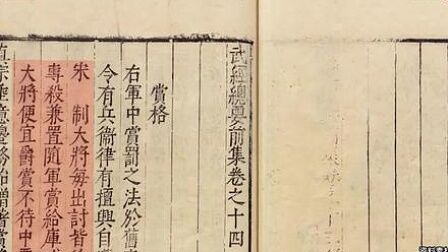 武經總要前集卷之十四
賞格
右軍中賞罰之法於舊
令有兵衛律有擅興自
宋 制大將每出討皆
專殺兼置隨軍賞給庫
大將便宜爵賞不待中